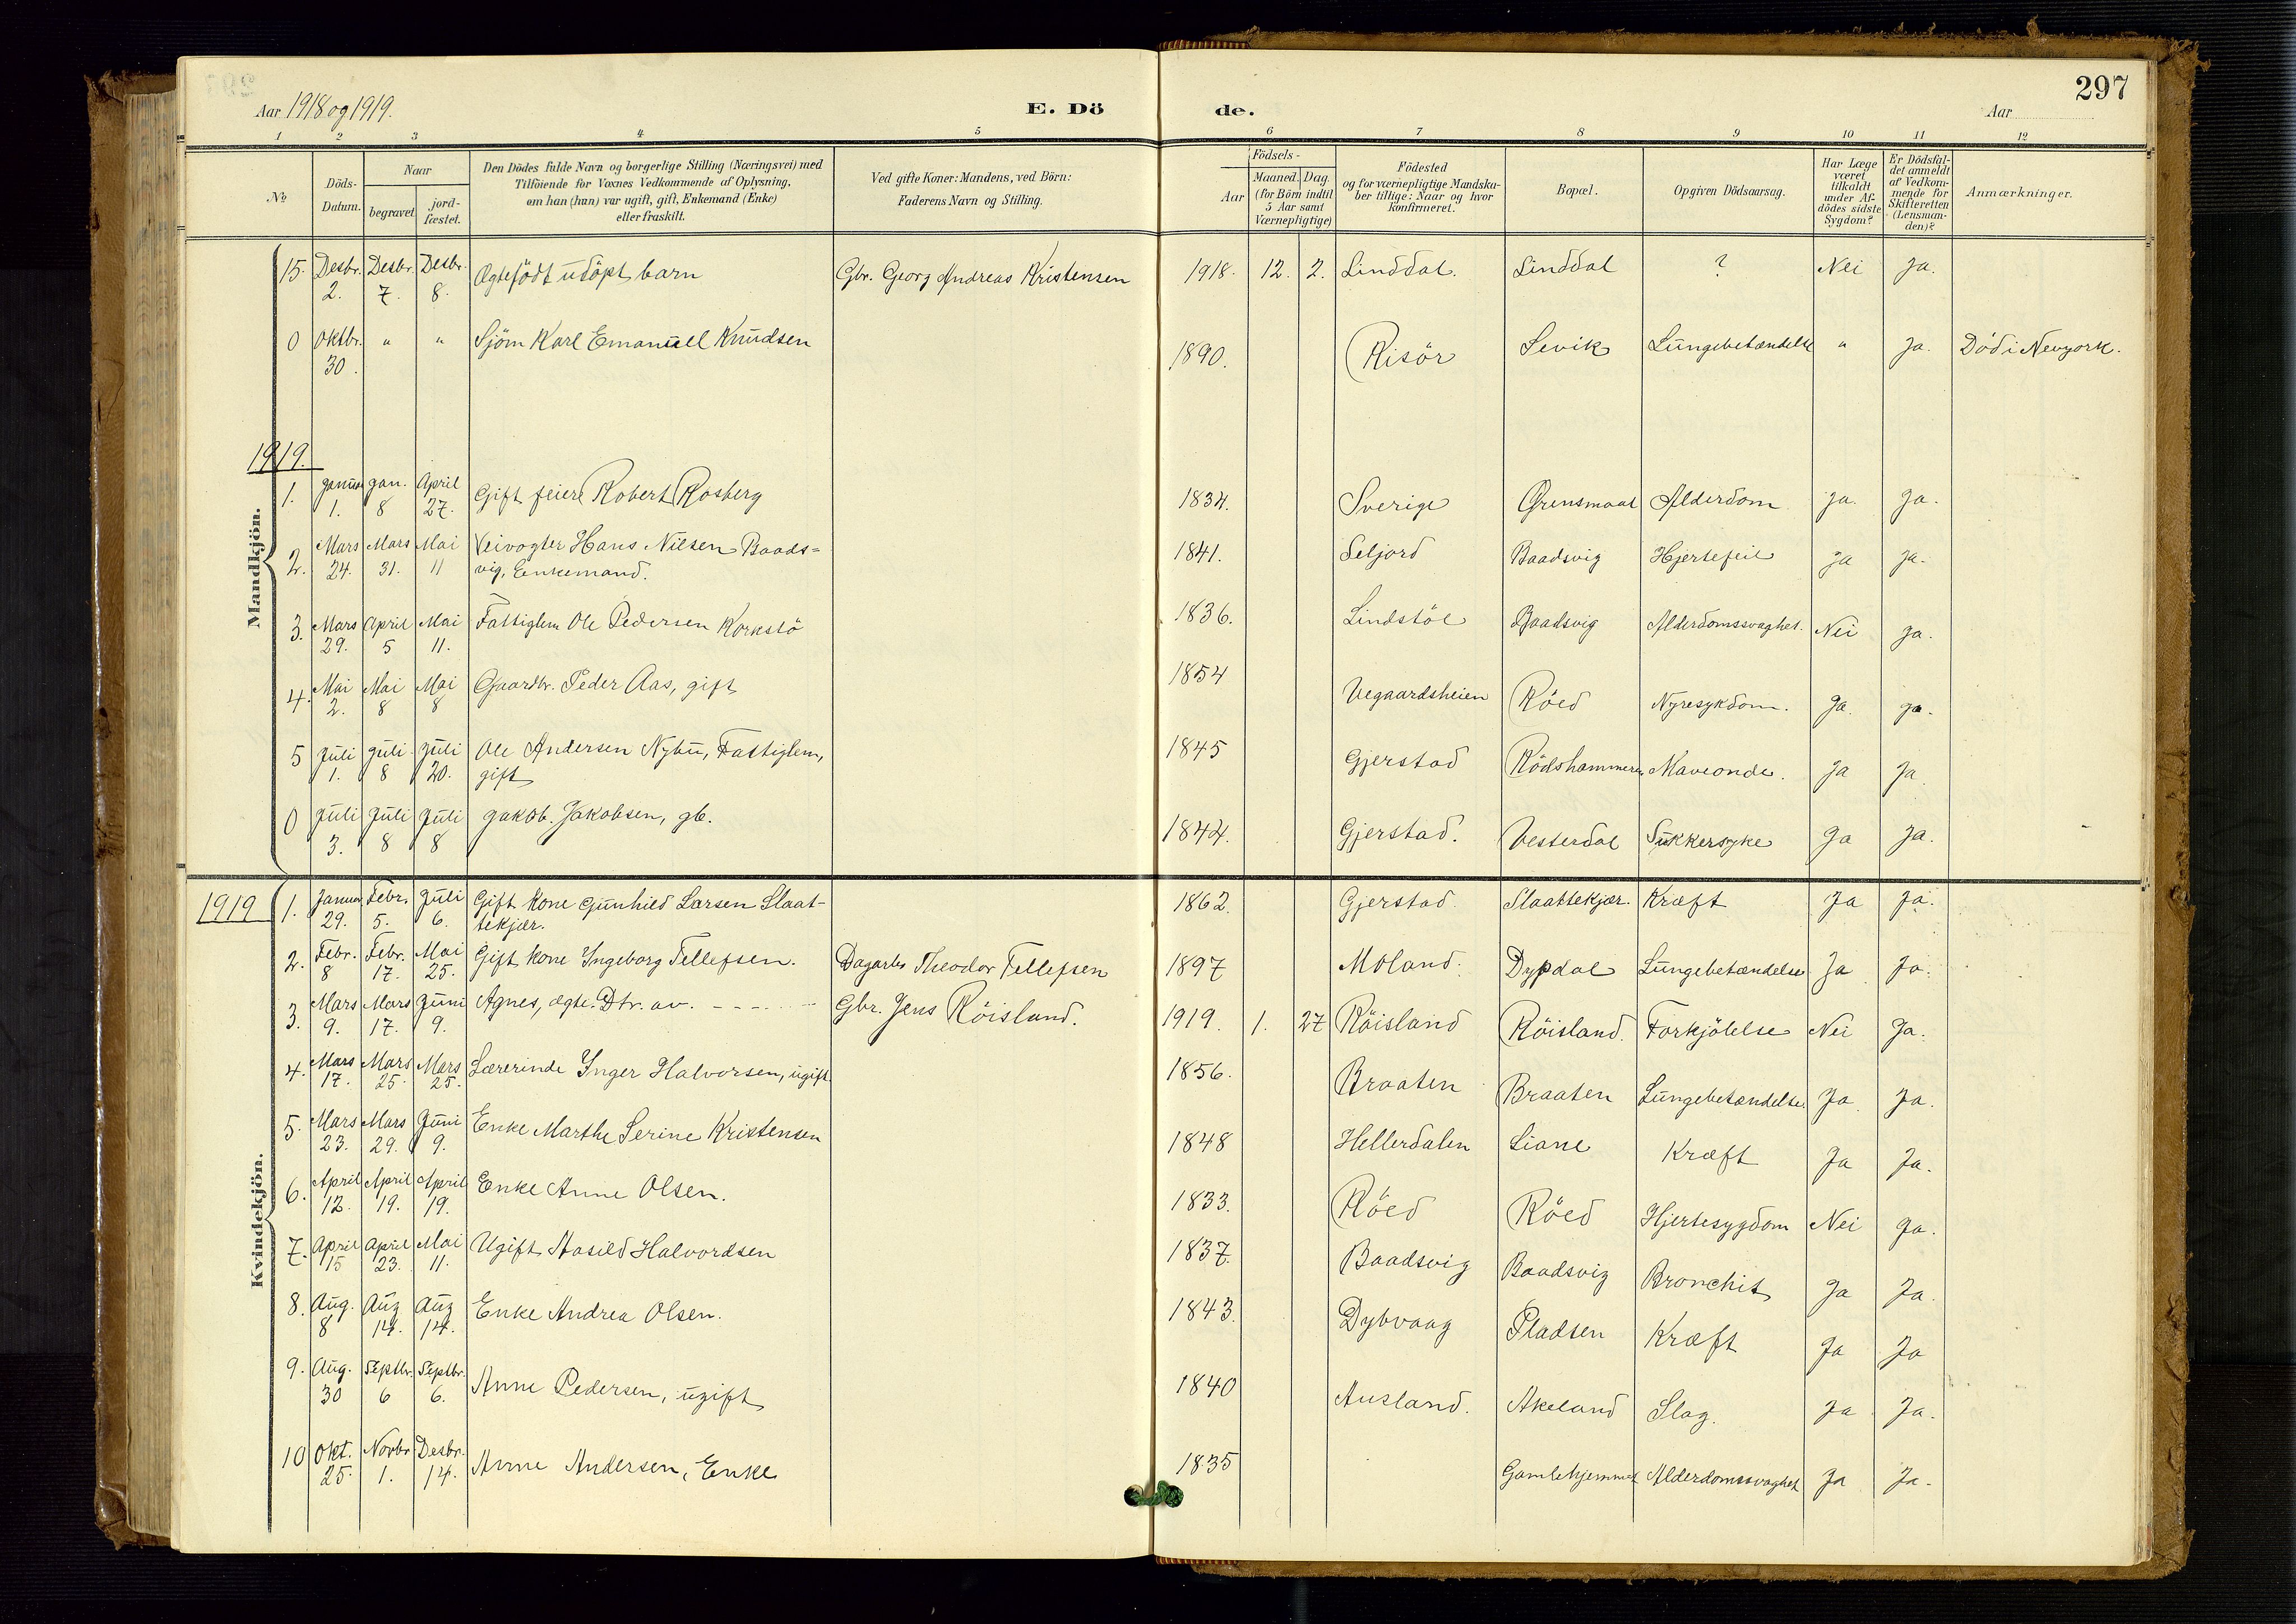 Aar 1918 og 1919.
E. Dö
de.
Aar
297
1 2 3 4 5 6 7 8 9 10 11 12
No
Döds-Datum.
Naar
begravet.
jord-fæstet.
Den Dödes fulde Navn og borgerlige Stilling (Næringsvei) med
Tilföiende for Voxnes Vedkommende af Oplysning,
om han (hun) var ugift, gift, Enkemand (Enke)
eller fraskilt.
Ved gifte Koner: Mandens, ved Börn:
Faderens Navn og Stilling.
Födsels-
Aar
Maaned. Dag.
(for Börn indtil
5 Aar samt
Værnepligtige)
Födested
og for værnepligtige Mandska-
ber tillige: Naar og hvor
konfirmeret.
Bopæl.
Opgiven Dödsaarsag.
Har Læge
været
tilkaldt
under Af-
dödes sidste
Sygdom?
Er Dödsfal-
det anmeldt
af Vedkom-
mende for
Skifteretten
(Lensman-
den)?
Anmærkninger.
15. Desbr. 2. Desbr. 7. Desbr. 8. Ægtefödt udöpt barn Gbr. Georg Andreas Kristensen 1918. 12. 2. Linddal. Linddal ? Nei Ja.
0 Oktbr. 30. " " Sjöm Karl Emanuel Knudsen 1890. Risör Levik Lungebetændelse " Ja. Död i Nevyork.
1919.
Mandkjön.
1. Januar 1. Jan. 8 April 27. Gift feier Robert Rosberg 1834. Sverige Grensmaal Alderdom Ja. Ja.
2. Mars 24. Mars 31. Mai 11 Veivogter Hans Nilsen Baads=
vig, Enkemand. 1841. Seljord Baadsvig Hjertefeil Ja Ja.
3. Mars 29. April 5 Mai 11. Fattiglem Ole Pedersen Korkstö 1836. Lindstöl Baadsvig Alderdomssvaghet. Nei Ja.
4. Mai 2. Mai 8 Mai 8 Gaardbr. Peder Aas, gift 1854 Vegaardsheien Röed Nyresykdom. Ja. Ja.
5 Juli 1. Juli 8 Juli 20. Ole Andersen Nybu, Fattiglem,
gift 1845 Gjerstad Rödshammeren Maveonde. Ja Ja
0 Juli 3. Juli 8 Juli 8 Jakob. Jakobsen, gb. 1844. Gjerstad. Vesterdal Sukkersyke Ja Ja.
1919
Kvindekjön.
1. Januar 29. Febr. 5. Juli 6. Gift kone Gunhild Larsen Slaat-
tekjær. 1862. Gjerstad Slaattekjær. Kræft Ja Ja.
2. Febr. 8 Febr. 17. Mai 25. Gift kone Ingeborg Tellefsen. Dagarb. Theodor Tellefsen 1897 Moland. Dypdal Lungebetændelse Ja Ja.
3. Mars 9. Mars 17. Juni 9. Agnes, ægte Dtr. av. - - - - Gbr. Jens Röisland. 1919. 1. 27 Röisland Röisland. Forkjölelse Nei Ja.
4. Mars 17. Mars 25. Mars 25. Lærerinde Inger Halvorsen, ugift 1856. Braaten Braaten Lungebetændelse. Ja Ja.
5. Mars 23. Mars 29. Juni 9. Enke Marthe Serine Kristensen 1848 Hellerdalen Liane Kræft Ja Ja.
6. April 12. April 19. April 19. Enke Anne Olsen. 1833. Röed Röed Hjertesygdom Nei Ja.
7. April 15 April 23. Mai 11. Ugift Aasild Halvordsen 1837. Baadsvig Baadsvig Bronchit Ja Ja.
8. Aug. 8 Aug 14. Aug 14. Enke Andrea Olsen. 1843. Dybvaag Pladsen Kræft Ja Ja
9. Aug. 30 Septbr. 6 Septbr. 6. Anne Pedersen, ugift 1840 Ausland. Akeland Slag. Ja Ja.
10 Okt. 25. Novbr 1. Desbr. 14. Anne Andersen, Enke 1835 Gamlehjemmet Alderdomssvaghet Ja Ja.